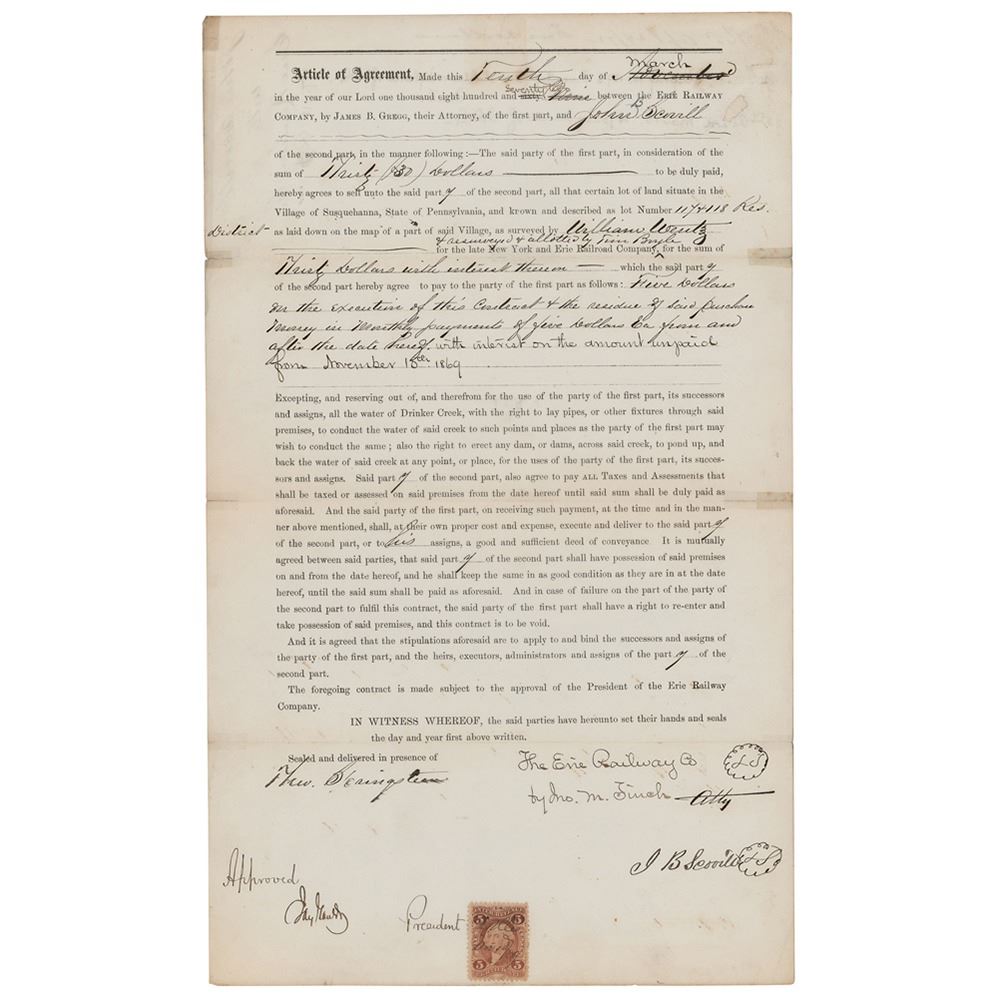 Article of Agreement, Made this Tenth day of March November
in the year of our Lord one thousand eight hundred and Seventy Two sixty Nine between the ERIE RAILWAY
COMPANY, by JAMES B. GREGG, their Attorney, of the first part, and John B Scovill
of the second part, in the manner following :—The said party of the first part, in consideration of the
sum of Thirty (30) Dollars to be duly paid,
hereby agrees to sell unto the said party of the second part, all that certain lot of land situate in the
Village of Susquehanna, State of Pennsylvania, and known and described as lot Number 117 & 118 Res.
District as laid down on the map of a part of said Village, as surveyed by William Wentz
& resurveyed & allotted by Tim Boyle
for the late New York and Erie Railroad Company, for the sum of
Thirty Dollars with interest thereon — which the said party
of the second part hereby agree to pay to the party of the first part as follows: Five Dollars
on the execution of this Contract & the residue of said purchase
money in monthly payments of five Dollars Ea from and
after the date hereof, with interest on the amount unpaid
from November 15th 1869
Excepting, and reserving out of, and therefrom for the use of the party of the first part, its successors
and assigns, all the water of Drinker Creek, with the right to lay pipes, or other fixtures through said
premises, to conduct the water of said creek to such points and places as the party of the first part may
wish to conduct the same ; also the right to erect any dam, or dams, across said creek, to pond up, and
back the water of said creek at any point, or place, for the uses of the party of the first part, its succes-
sors and assigns. Said party of the second part, also agree to pay ALL Taxes and Assessments that
shall be taxed or assessed on said premises from the date hereof until said sum shall be duly paid as
aforesaid. And the said party of the first part, on receiving such payment, at the time and in the man-
ner above mentioned, shall, at their own proper cost and expense, execute and deliver to the said party
of the second part, or to his assigns, a good and sufficient deed of conveyance. It is mutually
agreed between said parties, that said party of the second part shall have possession of said premises
on and from the date hereof, and he shall keep the same in as good condition as they are in at the date
hereof, until the said sum shall be paid as aforesaid. And in case of failure on the part of the party of
the second part to fulfil this contract, the said party of the first part shall have a right to re-enter and
take possession of said premises, and this contract is to be void.
And it is agreed that the stipulations aforesaid are to apply to and bind the successors and assigns of
the party of the first part, and the heirs, executors, administrators and assigns of the party of the
second part.
The foregoing contract is made subject to the approval of the President of the Erie Railway
Company.
IN WITNESS WHEREOF, the said parties have hereunto set their hands and seals
the day and year first above written.
Sealed and delivered in presence of
Theo. Springsteen
The Erie Railway Co LS
by Jno. M. Finch Atty
J B Scovill LS
Approved
Jay Gould
President
5 5